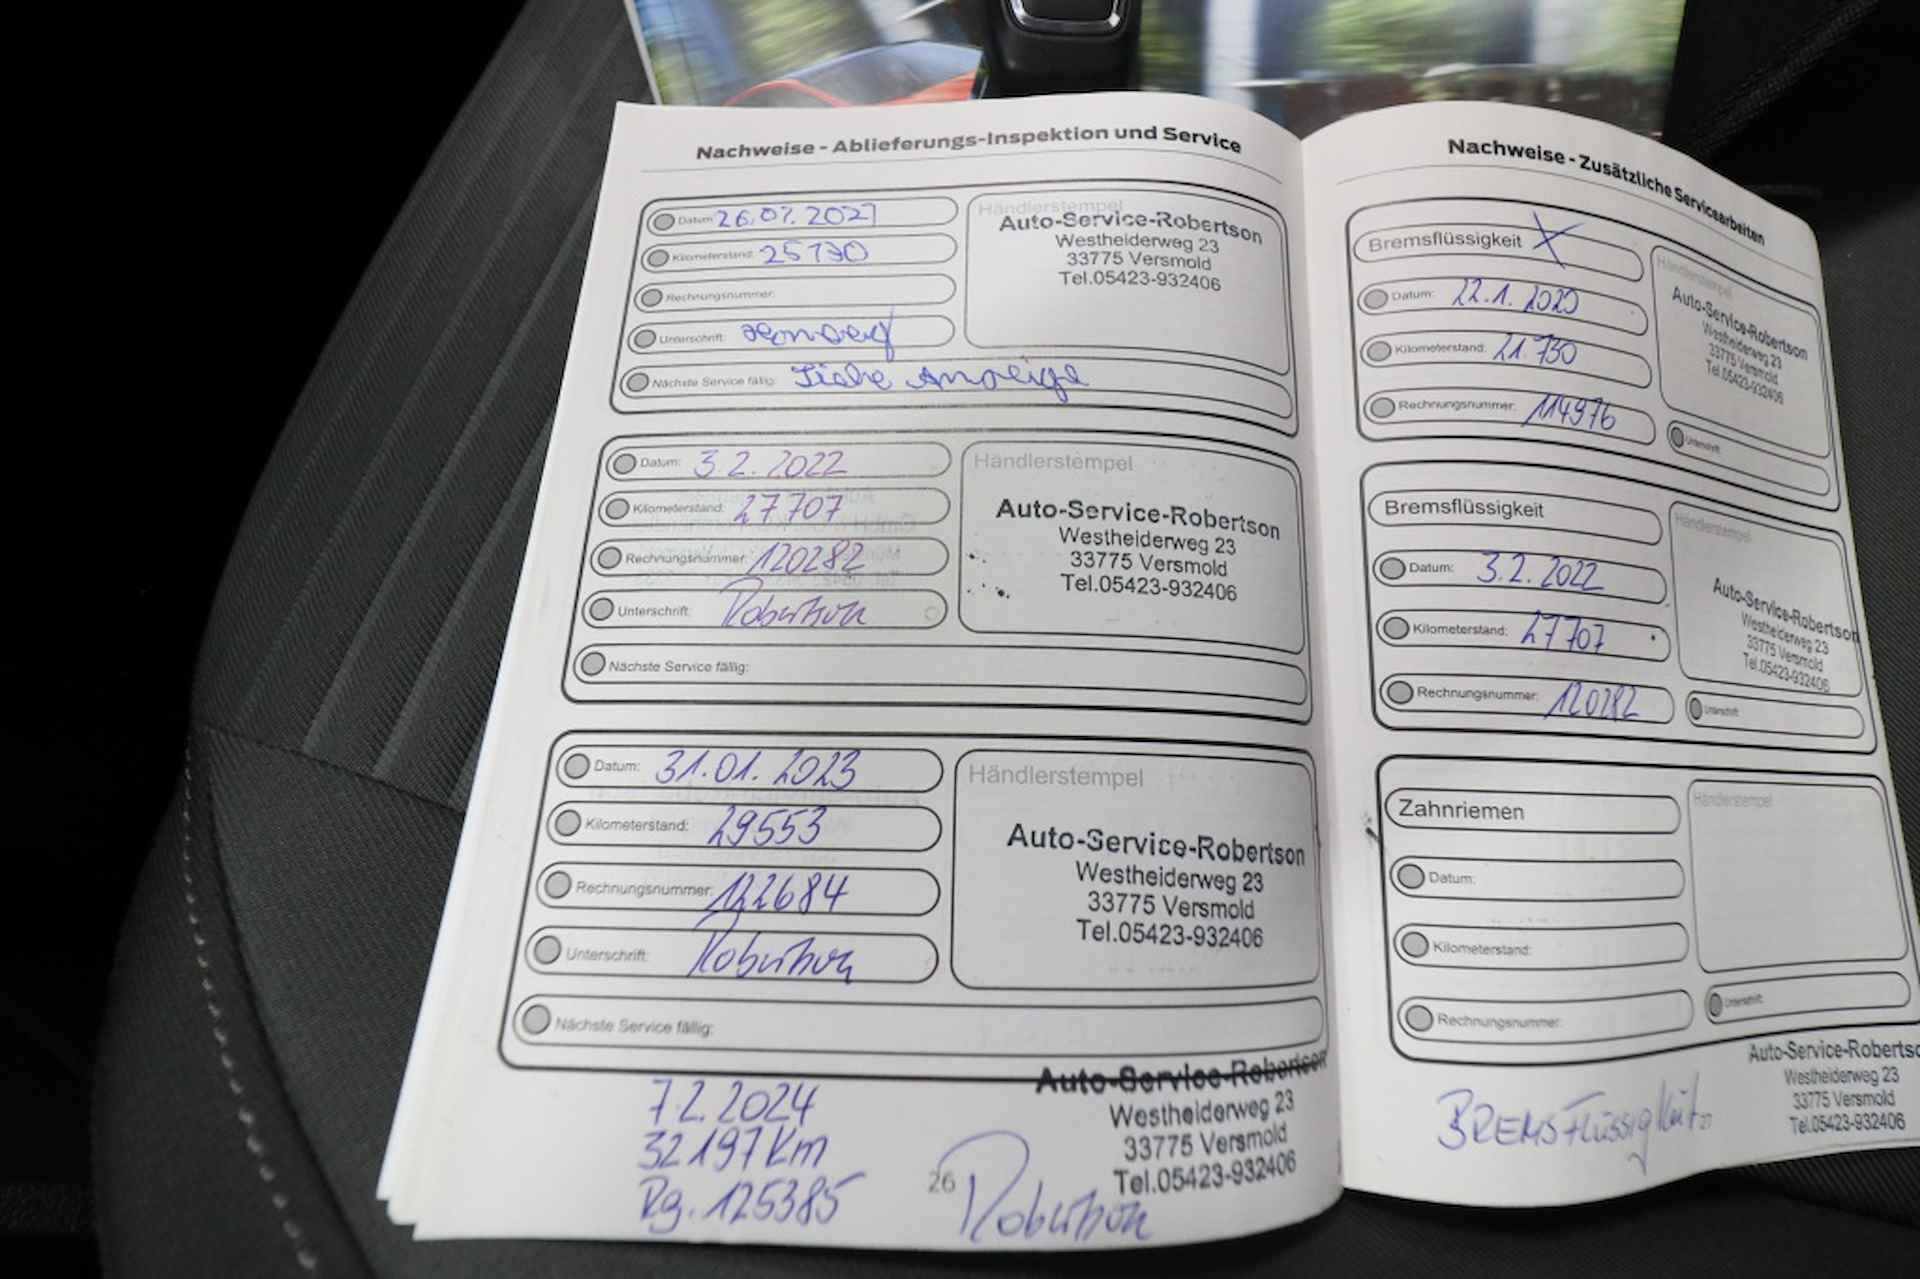 Nachweise - Ablieferungs-Inspektion und Service
Datum: 26.07.2021
Kilometerstand: 25730
Rechnungsnummer:
Unterschrift:
Nächste Service fällig: Siehe Anzeige
Händlerstempel
Auto-Service-Robertson
Westheiderweg 23
33775 Versmold
Tel.05423-932406
Datum: 3.2.2022
Kilometerstand: 27707
Rechnungsnummer: 120282
Unterschrift: Robertson
Nächste Service fällig:
Händlerstempel
Auto-Service-Robertson
Westheiderweg 23
33775 Versmold
Tel.05423-932406
Datum: 31.01.2023
Kilometerstand: 29553
Rechnungsnummer: 122684
Unterschrift: Robertson
Nächste Service fällig:
Händlerstempel
Auto-Service-Robertson
Westheiderweg 23
33775 Versmold
Tel.05423-932406
7.2.2024
32197 Km
Rg. 125385
26
Robertson
Auto-Service-Robertson
Westheiderweg 23
33775 Versmold
Tel.05423-932406
Nachweise - Zusätzliche Servicearbeiten
Bremsflüssigkeit X
Datum: 22.1.2020
Kilometerstand: 21.730
Rechnungsnummer: 114976
Händlerstempel
Auto-Service-Robertson
Westheiderweg 23
33775 Versmold
Tel.05423-932406
Unterschrift:
Bremsflüssigkeit
Datum: 3.2.2022
Kilometerstand: 27707
Rechnungsnummer: 120282
Händlerstempel
Auto-Service-Robertson
Westheiderweg 23
33775 Versmold
Tel.05423-932406
Unterschrift:
Zahnriemen
Datum:
Kilometerstand:
Rechnungsnummer:
Händlerstempel
Unterschrift:
BREMSFlüssigkeit
27
Auto-Service-Robertso
Westheiderweg 23
33775 Versmold
Tel.05423-932406